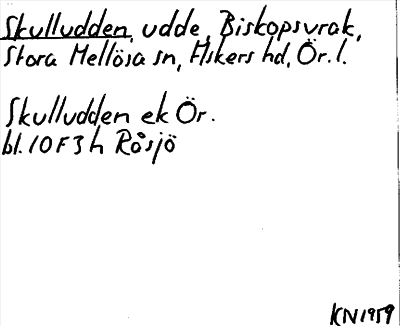 Skulludden, udde, Biskopsvrak,
Stora Mellösa sn, Askers hd, Ör. l.
Skulludden ek Ör.
bl. 10 F 3 h Råsjö
KN1959